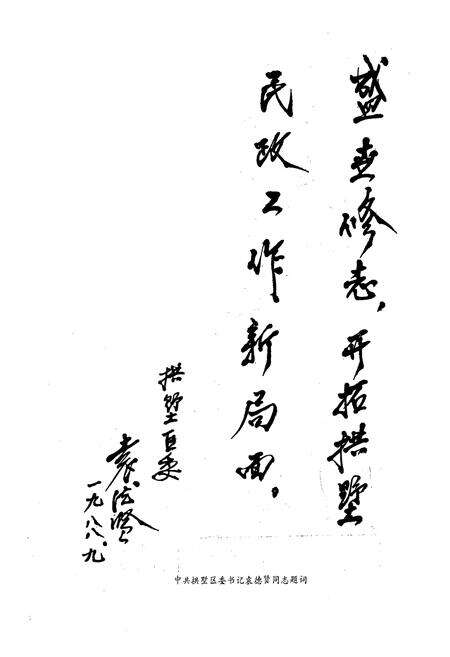 盛世修志，开拓拱墅
民政工作新局面，
拱墅区委
袁德贤
一九八八、九
中共拱墅区委书记袁德贤同志题词